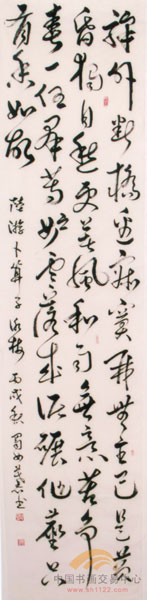 驛外斷橋邊寂寞開無主已是黄
昏獨自愁更著風和雨無意苦争
春一任羣芳妒零落成泥碾作塵只
有香如故
陸游卜算子詠梅 丙戌秋
中国书画交易中心
www.sh1122.com